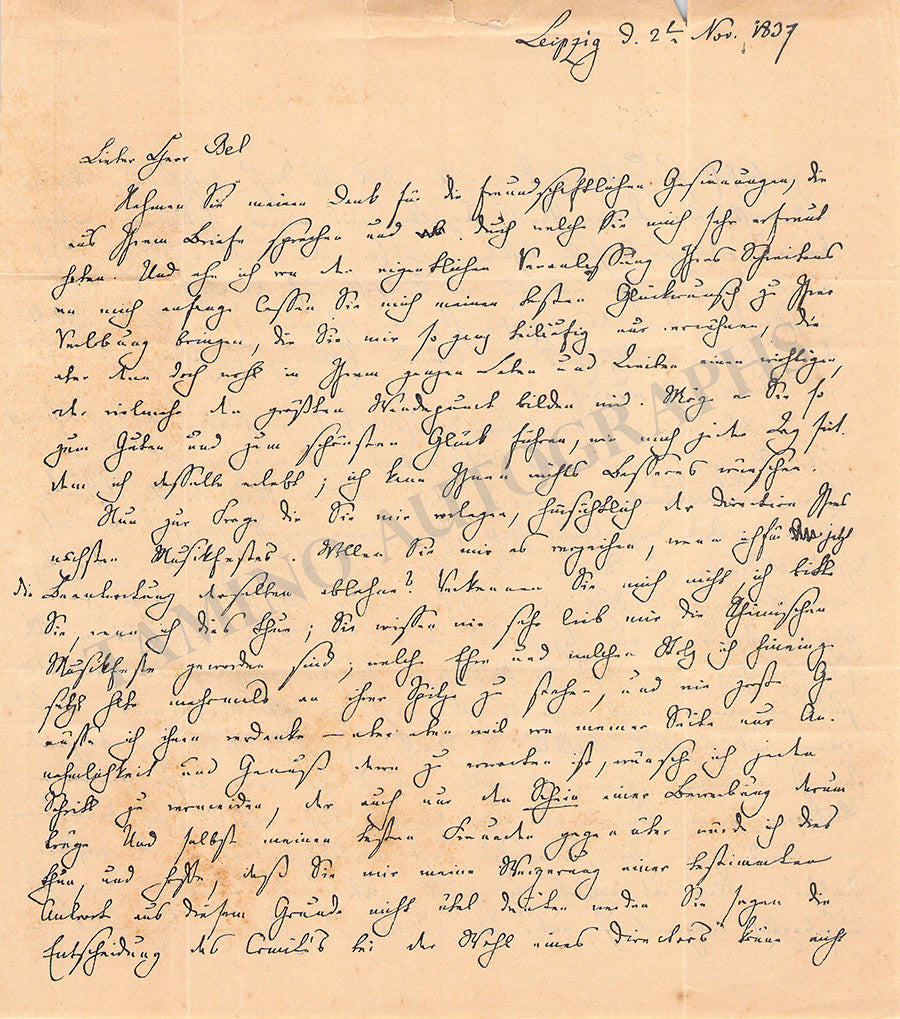 Leipzig d. 2t Nov. 1837
Lieber Herr Bel
Nehmen Sie meinen Dank für die freundschaftlichen Gesinnungen, die
aus Ihrem Briefe sprechen und durch welche Sie mich sehr erfreut
haben. Und ehe ich von der eigentlichen Veranlassung Ihres Schreibens
an mich anfange lassen Sie mich meinen besten Glückwunsch zu Ihrer
Verlobung bringen, die Sie mir so ganz beiläufig nur erwähnen, die
aber denn doch wohl in Ihrem ganzen Leben und Treiben einen wichtigen,
oder vielmehr den größten Wendepunct bilden wird. Möge er Sie so
zum Guten und zum schönsten Glück führen, wie mich jeder Tag seit
dem ich dasselbe erlebt; ich kann Ihnen nichts Besseres wünschen.
Nun zur Frage die Sie mir vorlegen, hinsichtlich der Direction Ihres
nächsten Musikfestes. Wollen Sie mir es verzeihen, wenn ich für jetzt
die Beantwortung derselben ablehne? Verkennen Sie mich nicht, ich bitte
Sie, wenn ich dies thue; Sie wissen wie sehr lieb mir die Rheinischen
Musikfeste geworden sind, welche Ehre und welchen Stolz ich
habe mehrmals an ihrer Spitze zu stehen, und wie große Ge
nüsse ich ihnen verdanke – aber eben weil von meiner Seite nur An-
nehmlichkeit und Genuß davon zu erwarten ist, wünsche ich jeden
Schritt zu vermeiden, der auch nur den Schein einer Bewerbung darum
trüge. Und selbst meinen besten Freunden gegenüber würde ich dies
thun, und hoffe, daß Sie mir meine Weigerung einer bestimmten
Antwort aus diesem Grunde nicht übel deuten werden. Sie sagen die
Entscheidung des Comité's bei der Wahl eines Directors könne nicht
TAMINO AUTOGRAPHS